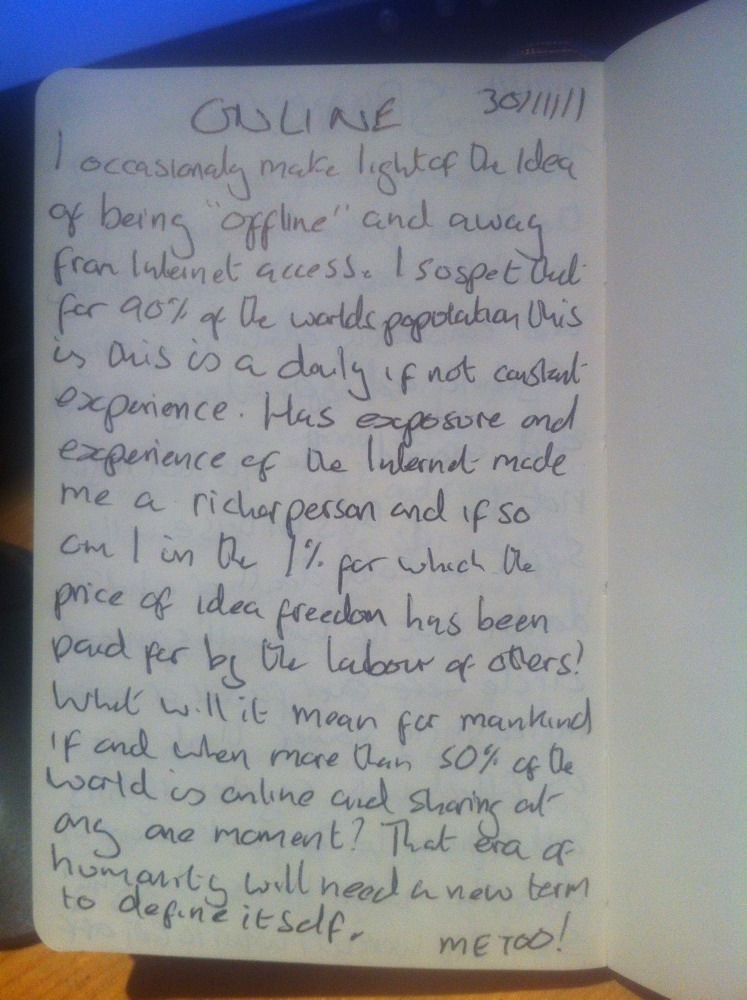 ONLINE 30/11/11
I occasionaly make light of the Idea
of being "offline" and away
from Internet access. I sospet that
for 90% of the worlds population this
is this is a daily if not constant
experience. Has exposure and
experience of the Internet made
me a richer person and if so
am I in the 1% for which the
price of idea freedom has been
paid for by the labour of others!
What will it mean for mankind
if and when more than 50% of the
world is online and sharing at
any one moment? That era of
humanity will need a new term
to define itself.
ME TOO!